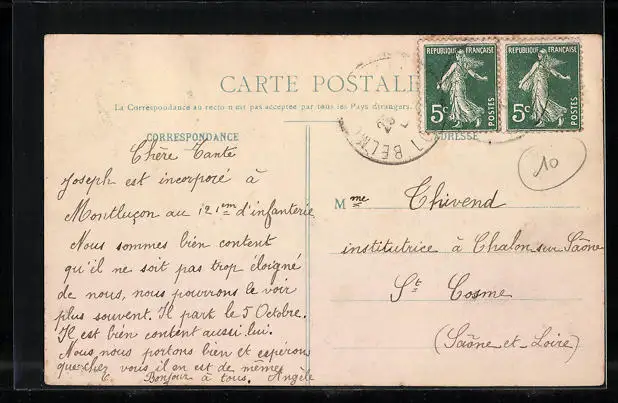 CARTE POSTALE
La Correspondance au recto n'est pas acceptée par tous les Pays étrangers.
REPUBLIQUE FRANÇAISE
5c
POSTES
REPUBLIQUE FRANÇAISE
5c
POSTES
10
CORRESPONDANCE
Chère Tante
Joseph est incorporé à
Montluçon au 121em d'infanterie
Nous sommes bien content
qu'il ne soit pas trop éloigné
de nous, nous pourrons le voir
plus souvent. Il part le 5 Octobre.
Il est bien content aussi lui.
Nous nous portons bien et espérons
que chez vous il en est de même
Bonjour à tous. Angèle
ADRESSE
Mme Thivend
institutrice à Chalon sur Saône
St Cosme
(Saône et Loire)